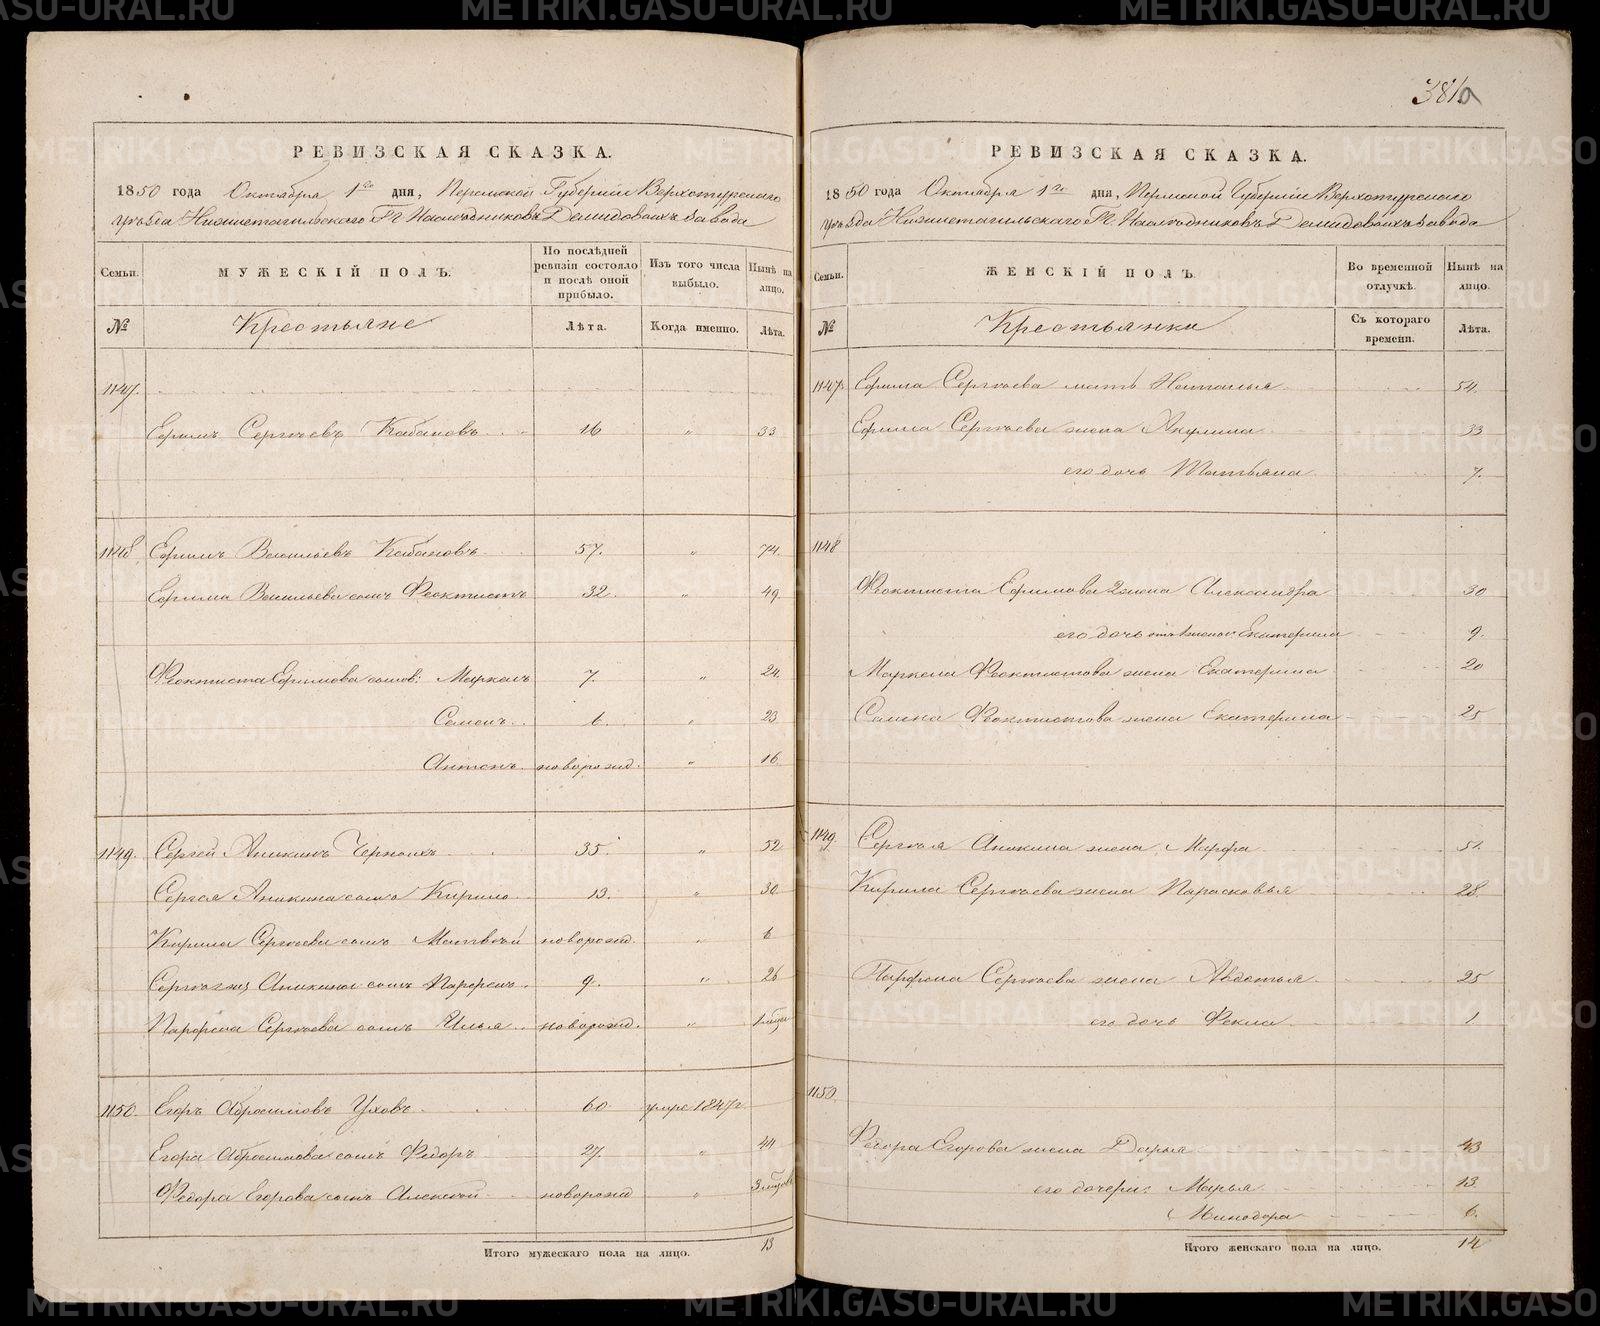 381а
РЕВИЗСКАЯ СКАЗКА.
1850 года Октября 1го дня, Пермской Губернiи Верхотурскаго
уѣзда Нижнетагильскаго Гг. Наслѣдниковъ Демидовыхъ завода
Семьи.
МУЖЕСКIЙ ПОЛЪ.
По послѣдней ревизiи состояло и послѣ оной прибыло.
Изъ того числа выбыло.
Нынѣ на лицо.
№
Крестьяне
Лѣта.
Когда именно.
Лѣта.
1147.
Ефимъ Сергѣевъ Кабаковъ 16 " 33
1148. Ефимъ Васильевъ Кабаковъ 57. " 74.
Ефима Васильева сынъ Феоктистъ 32. " 49
Феоктиста Ефимова сынов: Маркелъ 7. " 24.
Семенъ 6. " 23
Антонъ новорожд. " 16
1149. Сергей Аникинъ Черныхъ 35. " 52
Сергея Аникина сынъ Кирило 13. " 30
Кирила Сергѣева сынъ Матвѣй новорожд. " 6
Аникина сынъ Парфенъ 9. " 26
Парфена Сергѣева сынъ Илья новорожд. "
1150. Егоръ Абросимовъ Уховъ 60. умре 1847г.
Егора Абросимова сынъ Федоръ 27. " 44
Федора Егорова сынъ Алексѣй новорожд "
Итого мужескаго пола на лицо. 13
РЕВИЗСКАЯ СКАЗКА.
1850 года Октября 1го дня, Пермской Губернiи Верхотурскаго
уѣзда Нижнетагильскаго Гг. Наслѣдниковъ Демидовыхъ завода
Семьи.
ЖЕНСКIЙ ПОЛЪ
Во временной отлучкѣ.
Нынѣ на лицо.
№
Крестьянки
Съ котораго времени.
Лѣта.
1147. Ефима Сергѣева мать Наталья 54.
Ефима Сергѣева жена Акулина 33
его дочь Татьяна 7.
1148
Феоктиста Ефимова 2 жена Александра 30
его дочь отъ 1 жены Екатерина 9.
Маркела Феоктистова жена Екатерина 20
Семена Феоктистова жена Екатерина 25
1149. Сергѣя Аникина жена Марфа 51.
Кирила Сергѣева жена Парасковья 28.
Парфена Сергѣева жена Авдотья 25
его дочь Фекла 1
1150.
Федора Егорова жена Дарья 43
его дочери: Марья 13.
Минодора 6.
Итого женскаго пола на лицо. 14
METRIKI.GASO-URAL.RU